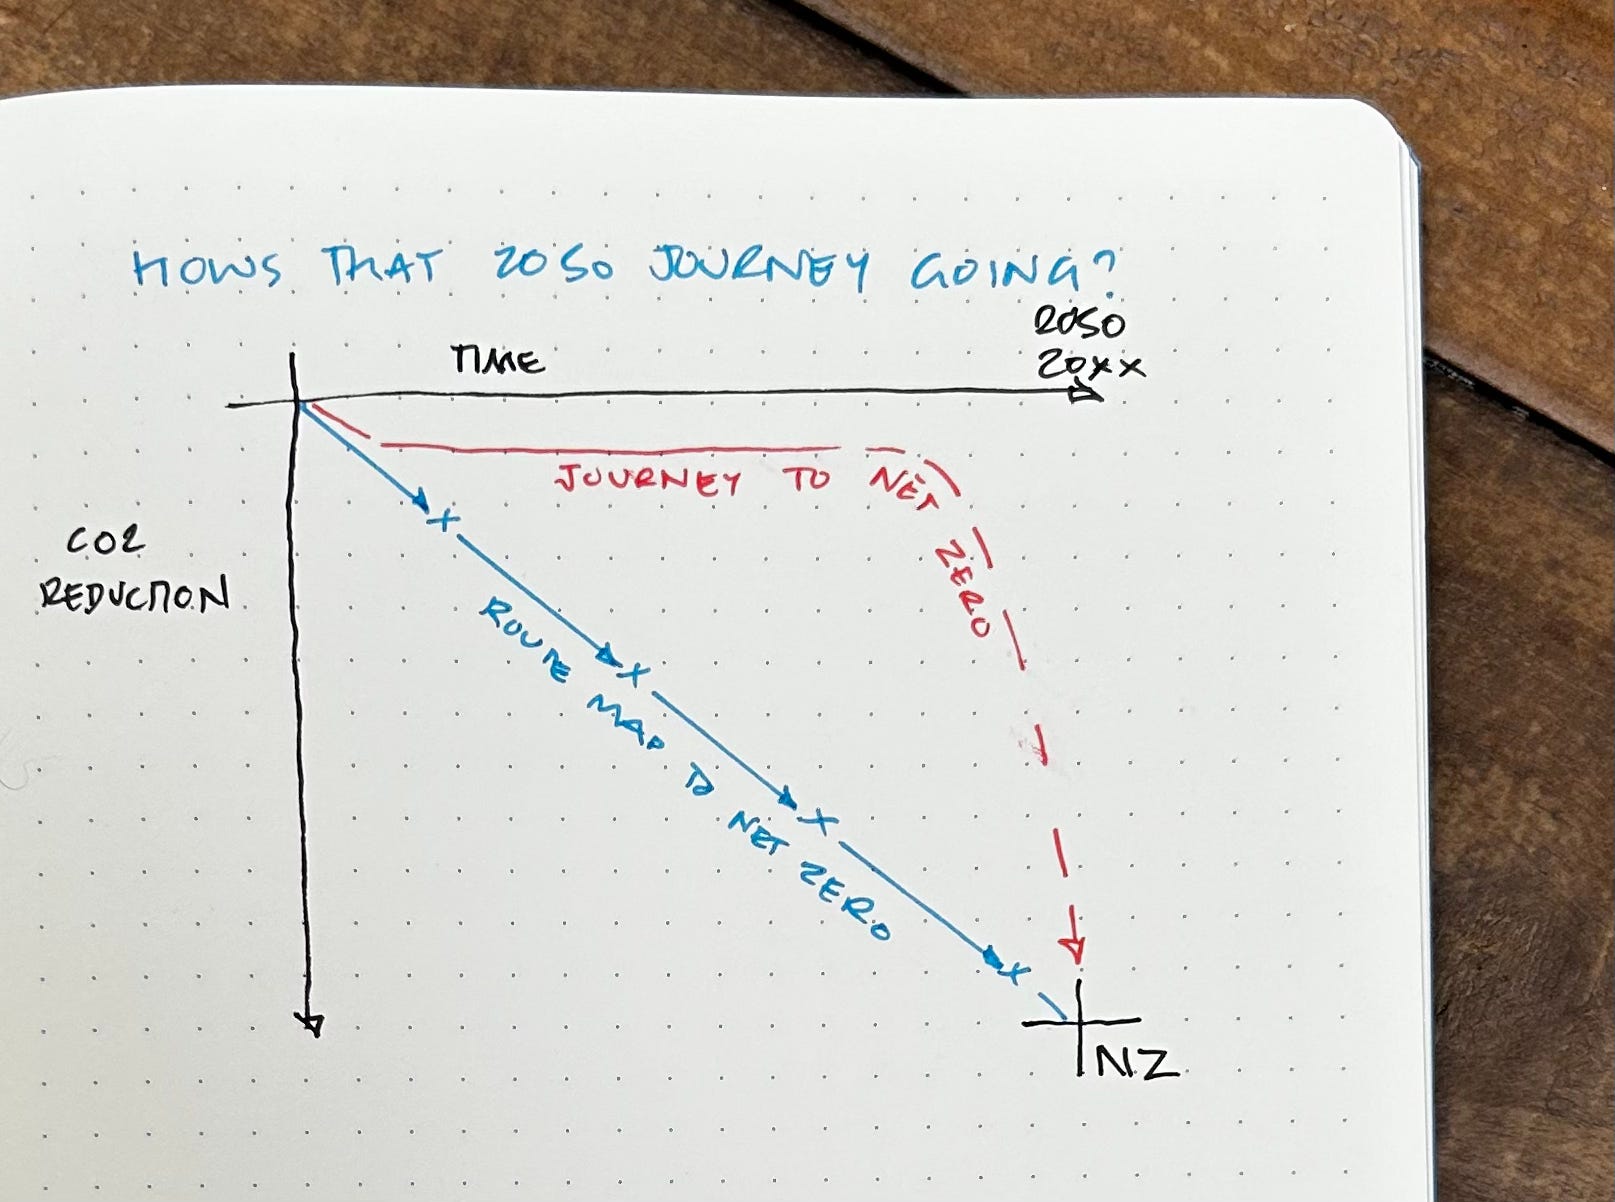 HOWS THAT 2050 JOURNEY GOING?
2050
TIME
20XX
JOURNEY TO NET ZERO
CO2
REDUCTION
ROUTE MAP TO NET ZERO
NZ